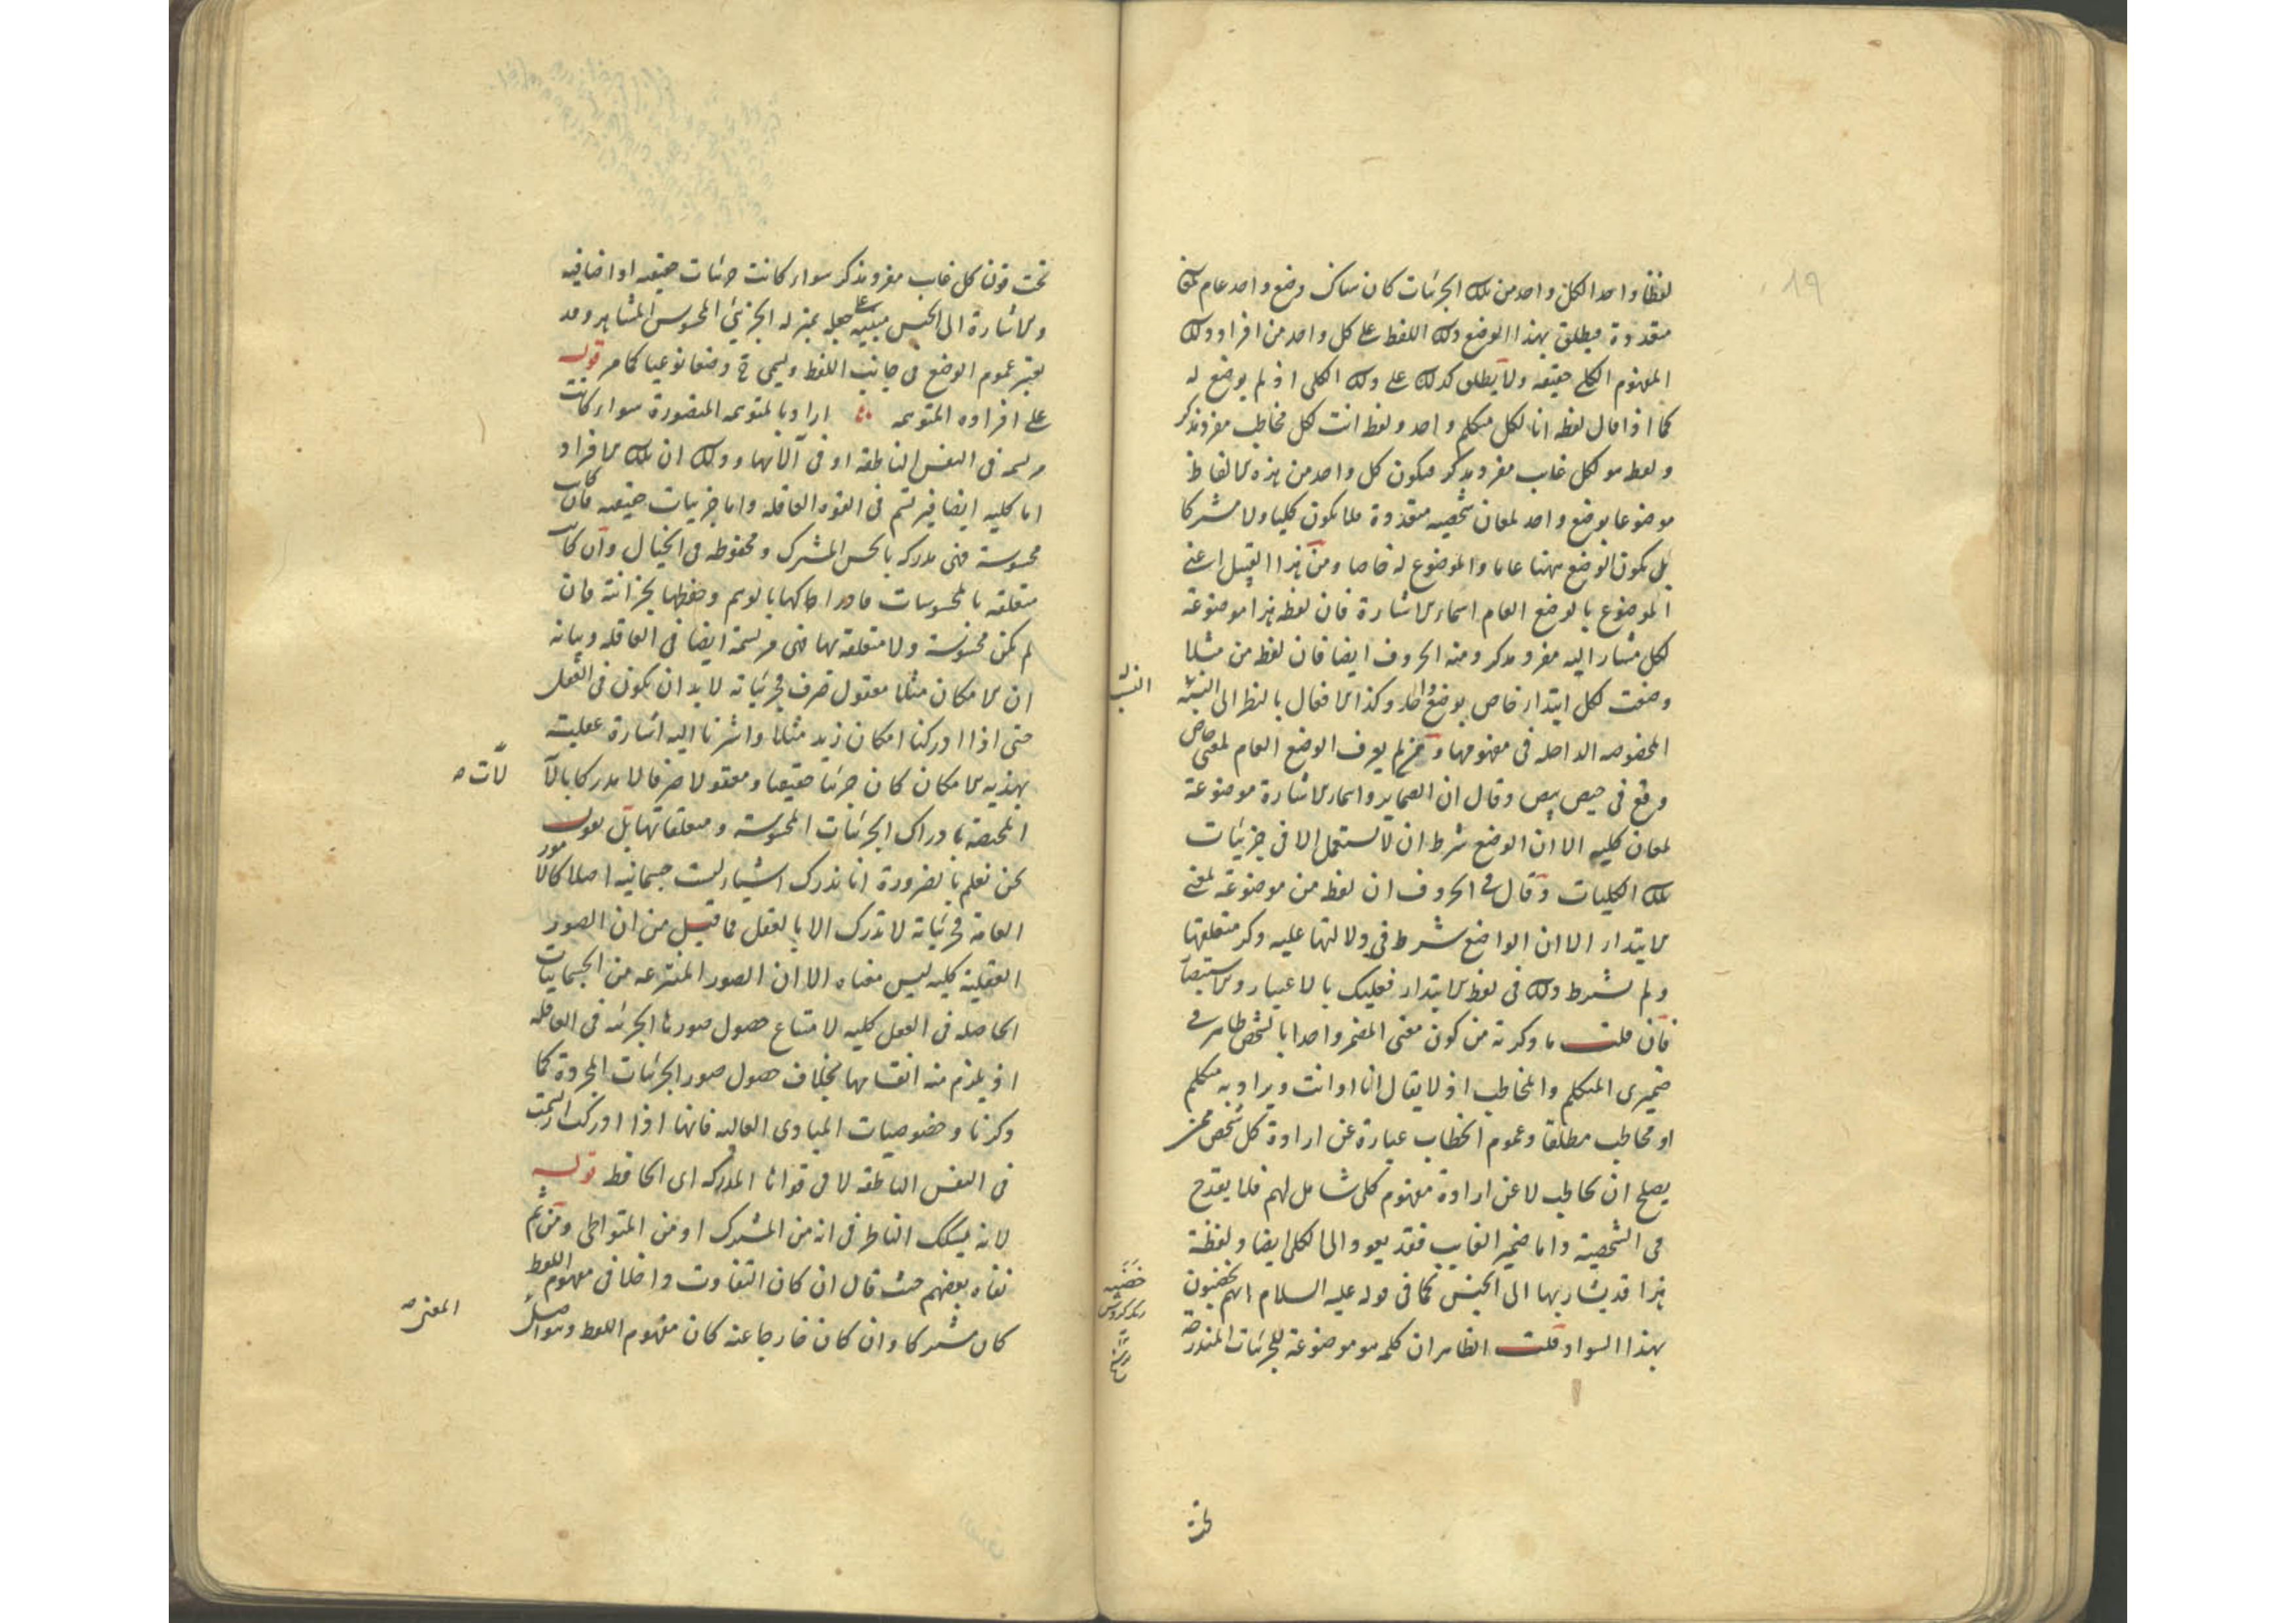 ١٩
لفظا واحدا لكل واحد من تلك الجزئيات كان هناك وضع واحد عام لمعان
متعددة فيطلق بهذا الوضع ذلك اللفظ على كل واحد من افراد ذلك
المفهوم الكلي حقيقة ولا يطلق كذلك على ذلك الكلي اذ لم يوضع له
كما اذا قال لفظ انا لكل متكلم واحد ولفظ انت لكل مخاطب مفرد مذكر
ولفظ هو لكل غايب مفرد مذكر فيكون كل واحد من هذه الالفاظ
موضوعا بوضع واحد لمعان شخصية متعددة فلا يكون كليا ولا مشتركا
بل يكون الوضع ههنا عاما والموضوع له خاصا ومن هذا القبيل اعني
الموضوع بالوضع العام اسماء الاشارة فان لفظ هذا موضوعة
لكل مشار اليه مفرد مذكر ومنه الحروف ايضا فان لفظ من مثلا
وضعت لكل ابتداء خاص بوضع واحد وكذا الافعال بالنظر الى النسبة
النسبة
المخصوصة الداخلة في مفهومها ومن لم يعرف الوضع العام لمعنى خاص
وقع في حيص بيص وقال ان الضماير واسماء الاشارة موضوعة
لمعان كلية الا ان الوضع شرط ان لا يستعمل الا في جزئيات
تلك الكليات وقال في الحروف ان لفظ من موضوعة لمعنى
الابتداء الا ان الواضع شرط في دلالتها عليه ذكر متعلقها
ولم يشترط ذلك في لفظ الابتداء فعليك بالاعتبار والاستبصار
فان قلت ما ذكرته من كون معنى المضمر واحدا بالشخص ظاهر في
ضميري المتكلم والمخاطب اذ لا يقال انا او انت ويراد به متكلم
او مخاطب مطلقا وعموم الخطاب عبارة عن ارادة كل شخص ممن
يصلح ان يخاطب لا عن ارادة مفهوم كلي شامل لهم فلا يقدح
في الشخصية واما ضمير الغايب فقد يعود الى الكلي ايضا ولفظة
هذا قد يشار بها الى الجنس كما في قوله عليه السلام انهم يخضبون
بهذا السواد قلت الظاهر ان كلمة هو موضوعة للجزئيات المندرجة
تحت
تحت قولنا كل غايب مفرد مذكر سواء كانت جزئيات حقيقية او اضافية
والاشارة الى الجنس مبنية على جعله بمنزلة الجزئي المحسوس المشاهد وقد
يعتبر عموم الوضع في جانب اللفظ ويسمى ح وضعا نوعيا كما مر قوله
على افراده المتوهمة اراد بالمتوهمة المتصورة سواء كانت
مرتسمة في النفس الناطقة او في آلاتها وذلك ان تلك الافراد
اما كلية ايضا فيرتسم في القوة العاقلة واما جزئيات حقيقية فان كانت
محسوسة فهي مدركة بالحس المشترك ومحفوظة في الخيال وان كانت
متعلقة بالمحسوسات فادراكها بالوهم وحفظها بخزانته فان
لم تكن محسوسة ولا متعلقة بها فهي مرتسمة ايضا في العاقلة وبيانه
ان الامكان مثلا معقول صرف فجزئياته لا بد ان يكون في العقل
حتى اذا ادركنا امكان زيد مثلا واشرنا اليه اشارة عقلية
بهذية الامكان كان جزئيا حقيقيا ومعقولا صرفا لا مدركا بالآ
لات صح
المختصة بادراك الجزئيات المحسوسة ومتعلقاتها بل نقول
نحن نعلم بالضرورة انا ندرك اشياء ليست جسمانية اصلا كالامور
العامة فجزئياته لا تدرك الا بالعقل فما قيل من ان الصور
العقلية كلية ليس معناه الا ان الصور المنتزعة من الجسمانيات
الحاصلة في العقل كلية لامتناع حصول صورها الجزئية في العاقلة
اذ يلزم منه انقسامها بخلاف حصول صور الجزئيات المجردة كما
ذكرنا وخصوصيات المبادي العالية فانها اذا ادركت ارتسمت
في النفس الناطقة لا في قواها المدركة اي الحافظة قوله
لانه يشكك الناظر في انه من المشترك او من المتواطي ومن ثم
نفاه بعضهم حيث قال ان كان التفاوت داخلا في مفهوم اللفظ
كان مشتركا وان كان خارجا عنه كان مفهوم اللفظ وهو اصل
المعنى صح